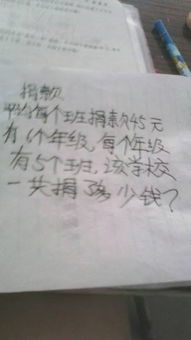 捐款
平均每个班捐款45元
有6个年级,每个年级
有5个班,该学校
一共捐了多少钱?